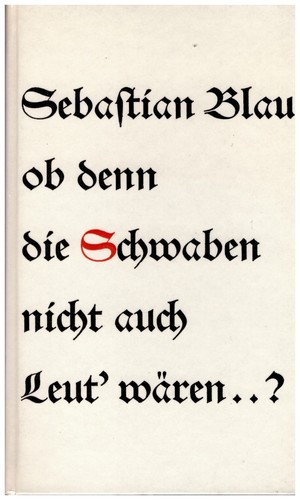 Sebaſtian Blau
ob denn
die Schwaben
nicht auch
Leut' wären..?